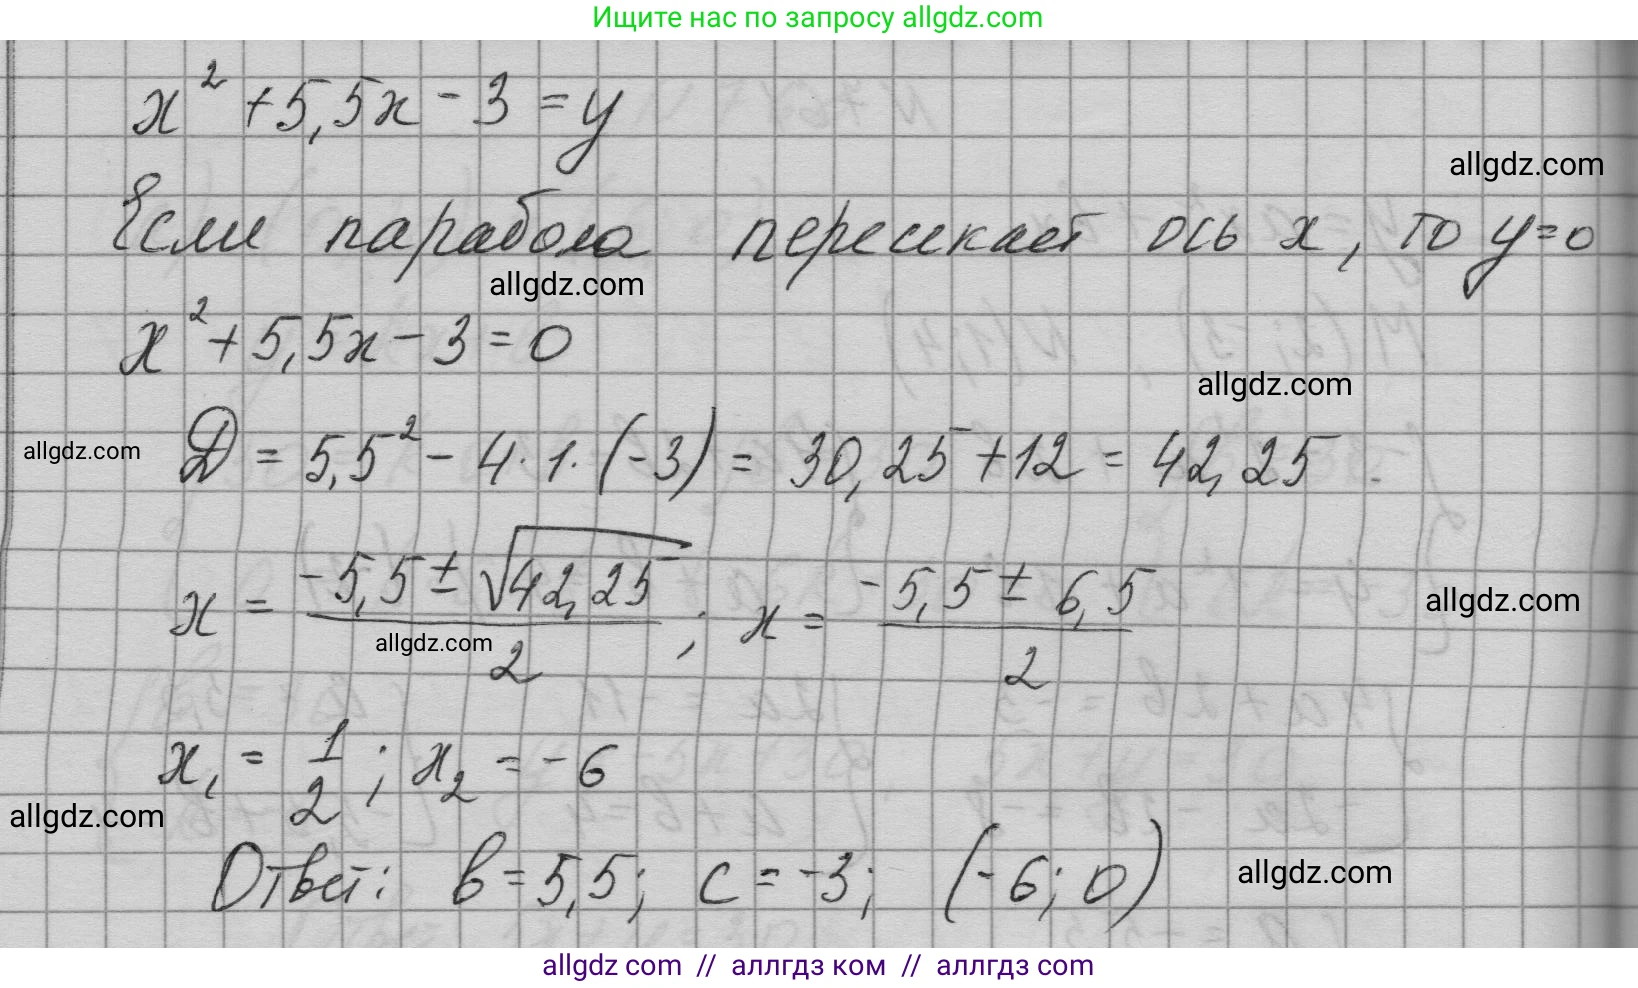 Ищите нас по запросу allgdz.com
x² + 5,5x - 3 = y
allgdz.com
Если парабола пересекает ось x, то y=0
allgdz.com
x² + 5,5x - 3 = 0
allgdz.com
allgdz.com
D = 5,5² - 4 · 1 · (-3) = 30,25 + 12 = 42,25
x = (-5,5 ± √42,25)/2 ; x = (-5,5 ± 6,5)/2
allgdz.com
allgdz.com
x₁ = 1/2 ; x₂ = -6
allgdz.com
Ответ: b = 5,5; c = -3; (-6; 0)
allgdz.com
allgdz com // аллгдз ком // аллгдз com